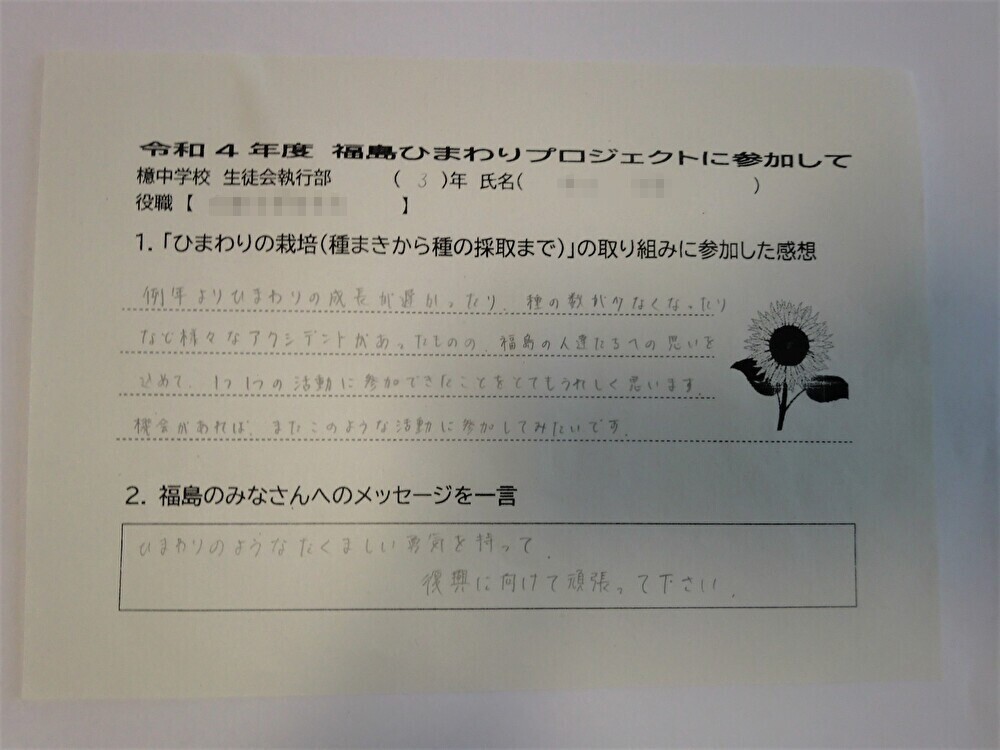 令和4年度 福島ひまわりプロジェクトに参加して
檍中学校 生徒会執行部 (3)年 氏名( )
役職【 】
1.「ひまわりの栽培(種まきから種の採取まで)」の取り組みに参加した感想
例年よりひまわりの成長が遅かったり、種の数が少なくなったり
など様々なアクシデントがあったものの、福島の人達たちへの思いを
込めて、1つ1つの活動に参加できたことをとてもうれしく思います。
機会があれば、またこのような活動に参加してみたいです。
2. 福島のみなさんへのメッセージを一言
ひまわりのようなたくましい勇気を持って、
復興に向けて頑張って下さい。